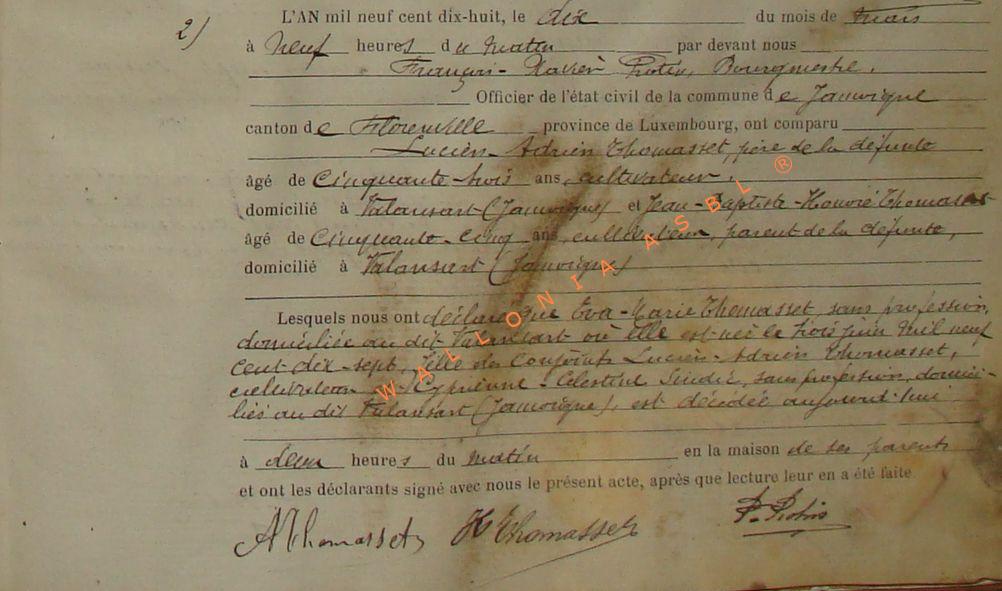 2)
L'AN mil neuf cent dix-huit, le dix du mois de mars
à neuf heures du matin par devant nous
François-Xavier Protin, Bourgmestre,
Officier de l'état civil de la commune de Jamoigne
canton de Florenville province de Luxembourg, ont comparu
Lucien-Adrien Thomasset, père de la défunte
âgé de Cinquante-trois ans, cultivateur,
domicilié à Valansart (Jamoigne) et Jean-Baptiste-Honoré Thomasset
âgé de Cinquante-cinq ans, cultivateur, parent de la défunte,
domicilié à Valansart (Jamoigne)
Lesquels nous ont déclaré que Eva-Marie Thomasset, sans profession,
domiciliée au dit Valansart où elle est née le trois juin mil neuf
cent dix-sept, fille des conjoints Lucien-Adrien Thomasset,
cultivateur Célestine sans profession, domici-
liés au dit Valansart (Jamoigne), est décédée aujourd'hui
à deux heures du matin en la maison de ses parents
et ont les déclarants signé avec nous le présent acte, après que lecture leur en a été faite.
AThomasset HThomasset P. Protin
WALLONIA ASBL ®